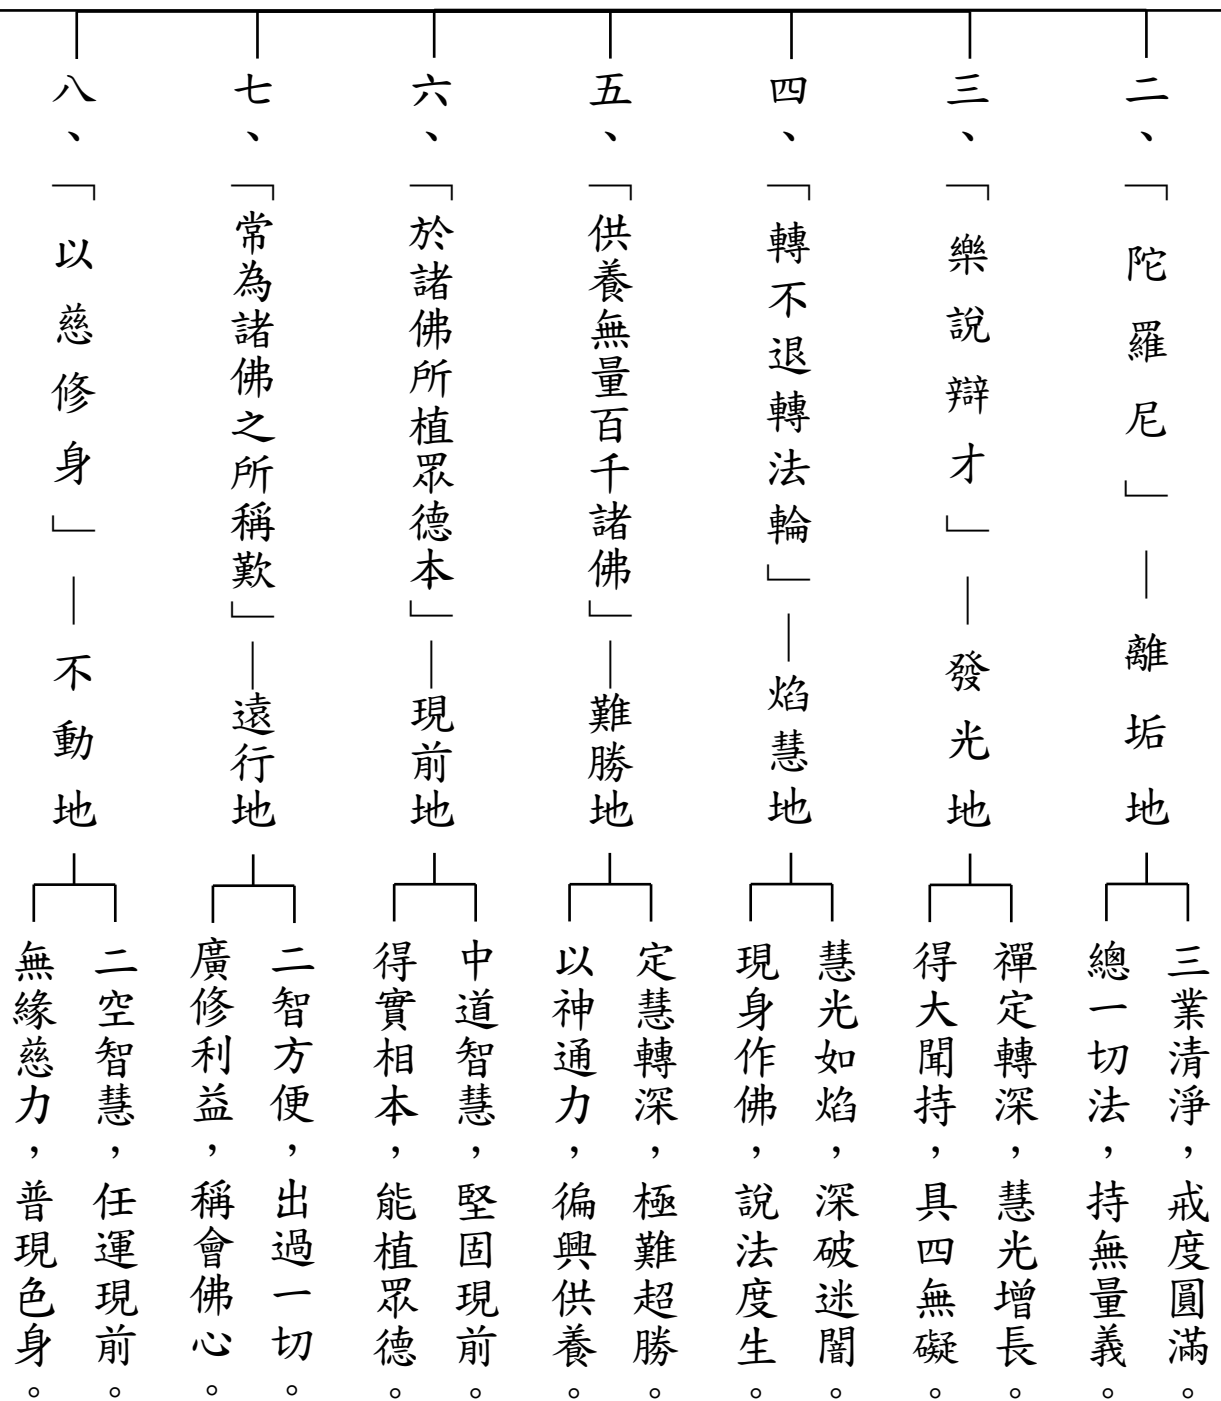 二、「陀羅尼」—離垢地
三業清淨，戒度圓滿。
總一切法，持無量義。
三、「樂說辯才」—發光地
禪定轉深，慧光增長。
得大聞持，具四無礙。
四、「轉不退轉法輪」—焰慧地
慧光如焰，深破迷闇。
現身作佛，說法度生。
五、「供養無量百千諸佛」—難勝地
定慧轉深，極難超勝。
以神通力，徧興供養。
六、「於諸佛所植眾德本」—現前地
中道智慧，堅固現前。
得實相本，能植眾德。
七、「常為諸佛之所稱歎」—遠行地
二智方便，出過一切。
廣修利益，稱會佛心。
八、「以慈修身」—不動地
二空智慧，任運現前。
無緣慈力，普現色身。